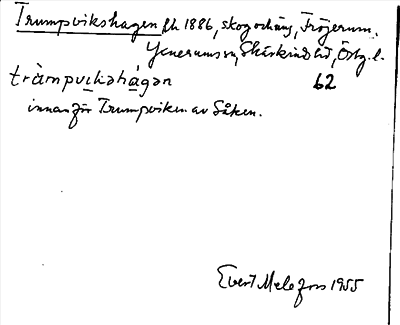 Trumpvikshagen fk 1886, skog och äng, Fröjerum.
Yxnerums sn, Skärkinds hd, Östg. l.
tràmpvikshágən 62
innanför Trumpviken av Såken.
Evert Melefors 1955